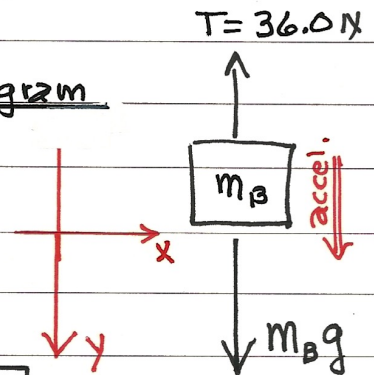 T = 36.0 N
gram
mB
accel.
x
mBg
y